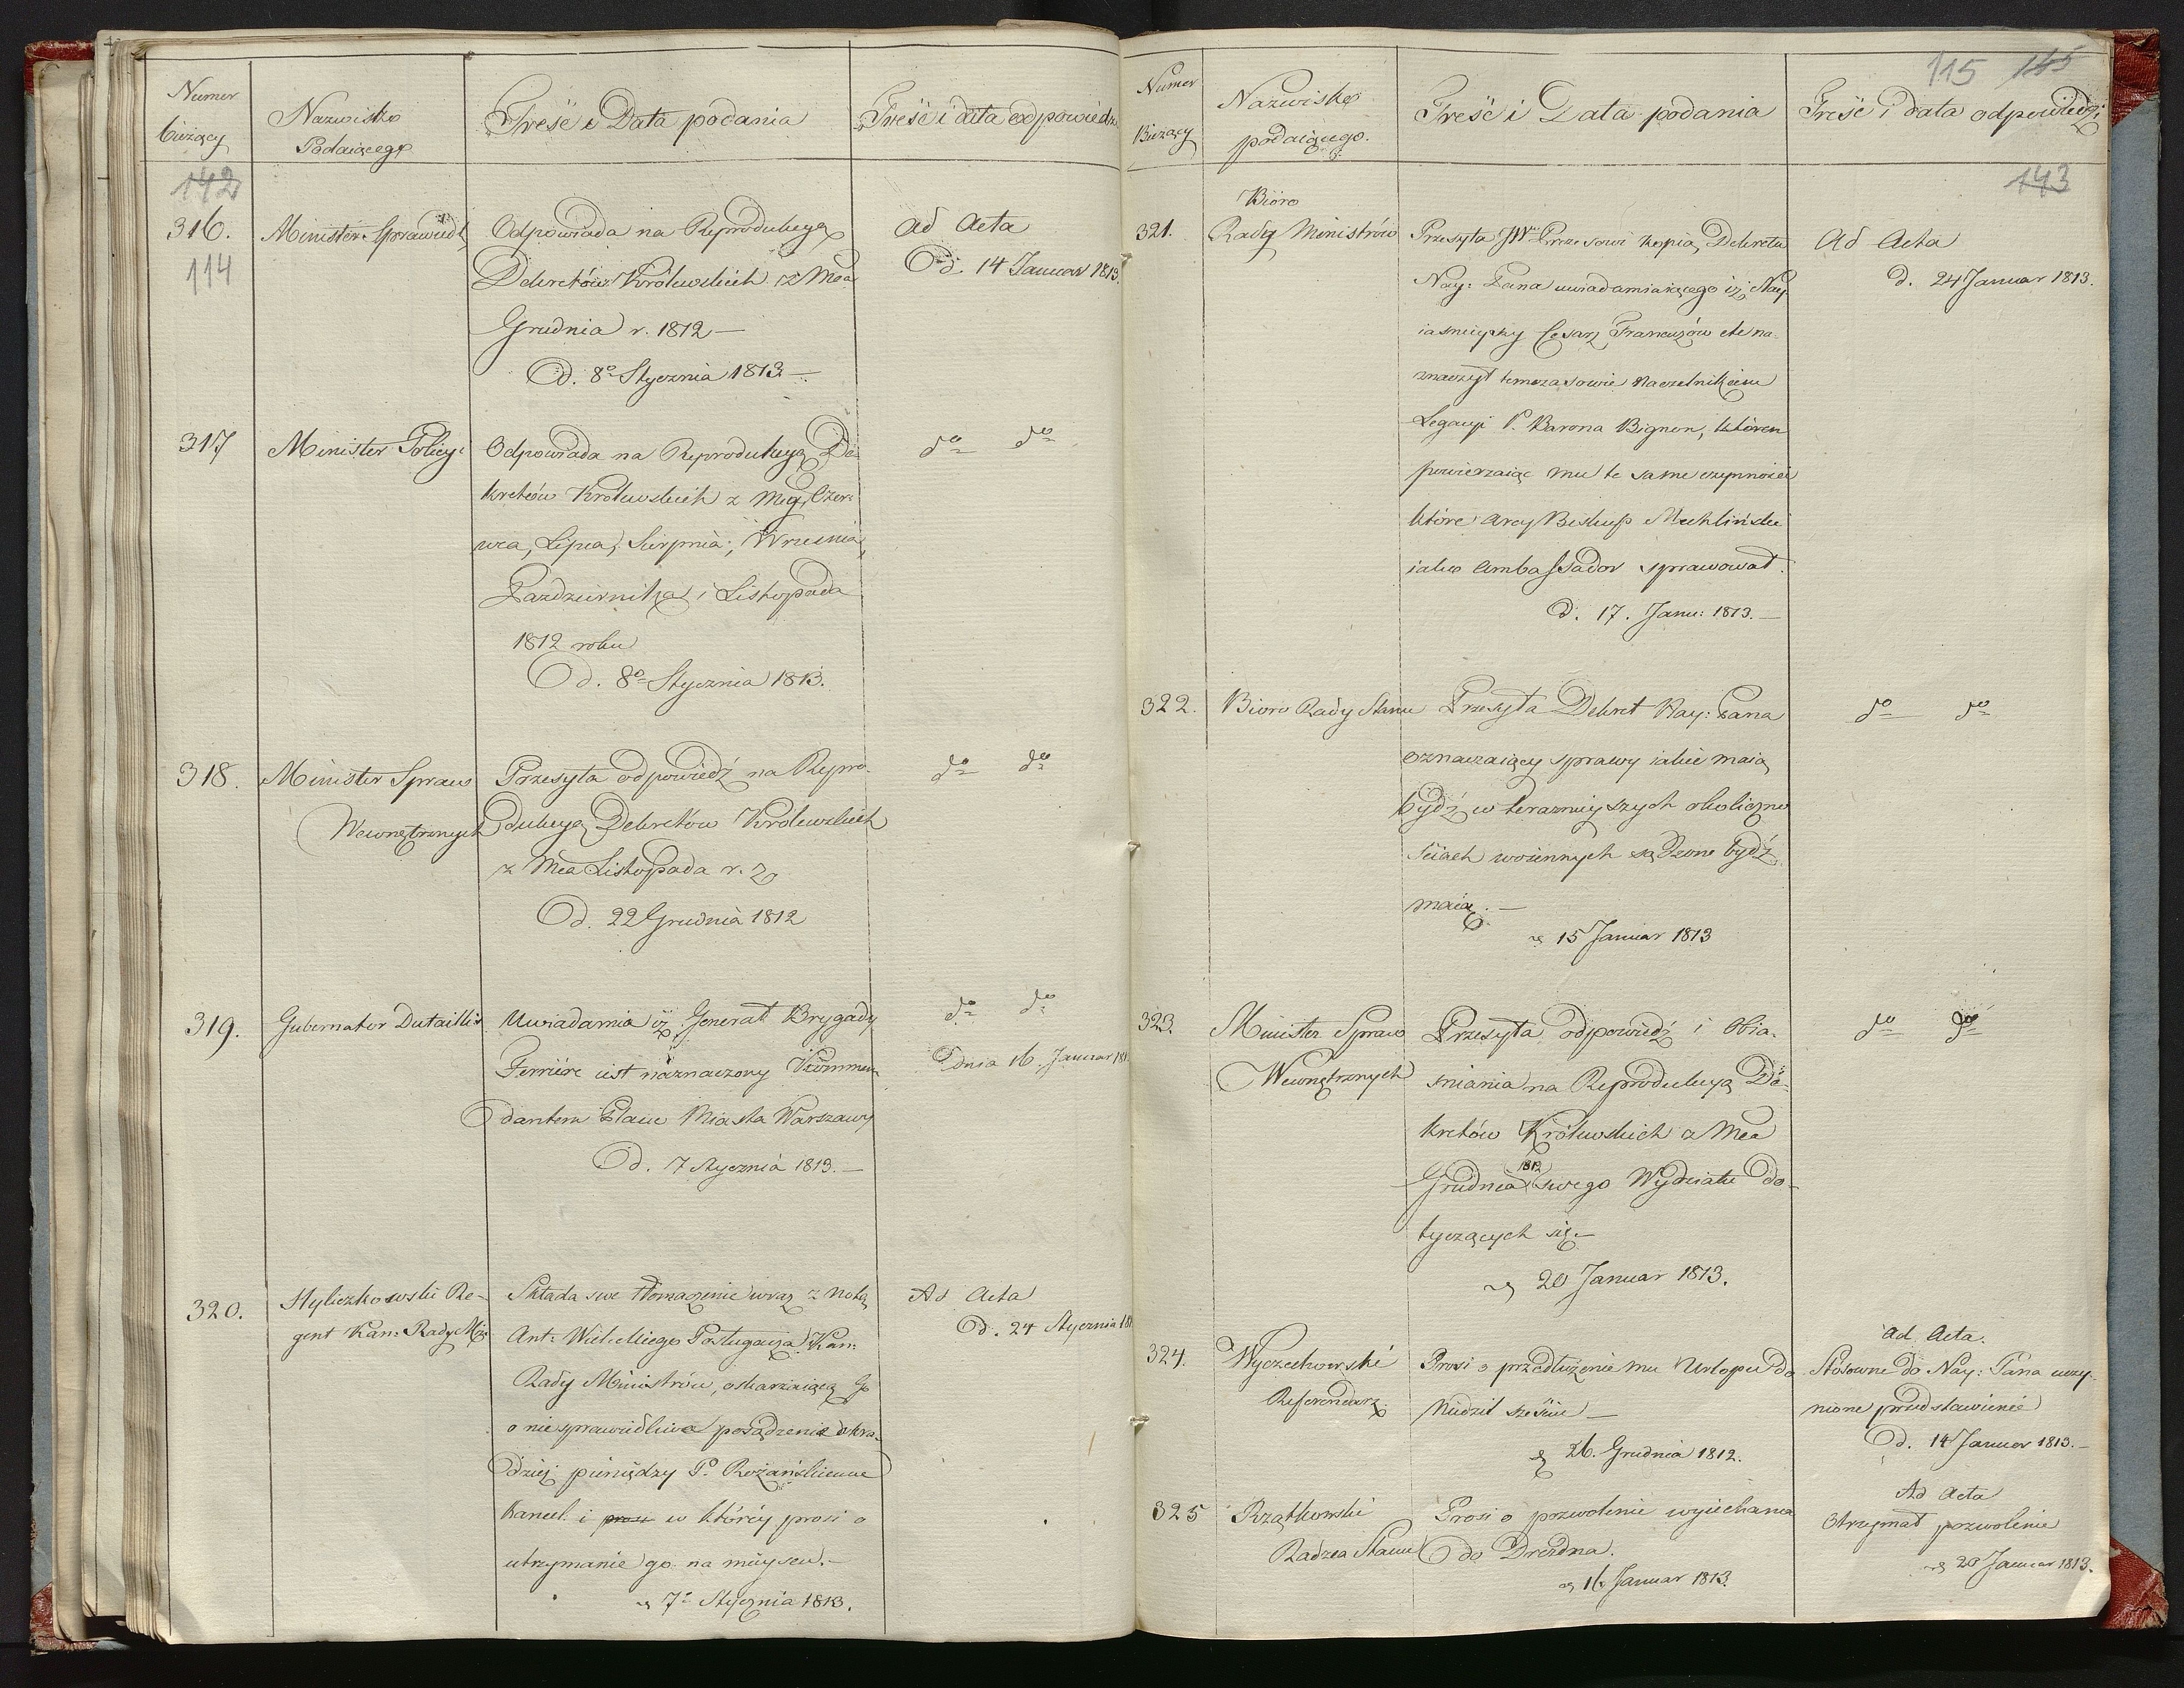 Numer
bieżący
Nazwisko
Podaiącego
Treść i Data podania
Treść i data odpowiedzi
142
114
316.
Minister Sprawiedl
Odpowiada na Reprodukcyą
Dekretów Królewskich z Mca
Grudnia r. 1812 —
D. 8º Stycznia 1813. —
Ad Acta
D. 14 Januar 1813.
317
Minister Policyi
Odpowiada na Reprodukcyą De-
kretów Królewskich z Mcy Czer-
wca, Lipca, Sierpnia, Września,
Pazdziernika i Listopada
1812 roku
D. 8º Stycznia 1813.
dº dº
318.
Minister Spraw
Wewnętrznych
Przesyła odpowiedź na Repro-
dukcyą Dekretów Królewskich
z Mca Listopada r. z
D. 22 Grudnia 1812
dº dº
319.
Gubernator Dutaillis
Uwiadamia iż Generał Brygady
Ferriere iest naznaczony Kommen-
dantem Placu Miasta Warszawy
D. 7 Stycznia 1813. —
dº dº
Dnia 16. Januar 181
320.
Hyliczkowski Re-
gent Kan: Rady Mi:
Składa swe tłomaczenie wraz z notą
Ant: Wielickiego Posługacza Kan:
Rady Ministrów, oskarzaiącą Go
o niesprawiedliwe posądzenie o kra-
dzież pieniędzy Pº Rożańskiemu
Kancel. i prosi w któréy prosi o
utrzymanie go na mieyscu. —
d 7º Stycznia 1813.
Ad Acta
D. 24 Stycznia 181
Numer
Bieżący
Nazwisko
podaiącego.
Treść i Data podania
Treść i data odpowiedzi
115 145
143
321.
Bióro
Rady Ministrów
Przesyła JWu Prezesowi kopią Dekretu
Nay: Pana uwiadamiaiącego iż Nay-
iaśnieyszy Cesarz Francuzów etc na-
znaczył tymczasowie Naczelnikiem
Legacyi P. Barona Bignon, którem
powierzaiąc mu te same czynności
które Arcy Biskup Mechliński
iako Ambassador sprawował.
d. 17. Janu: 1813. —
Ad Acta
d. 24 Januar 1813.
322.
Bioro Rady Stanu
Przesyła Dekret Nay: Pana
oznaczaiący sprawy iakie maią
bydź w teraznieyszych okoliczno
ściach woiennych sądzone bydź
maią. —
d 15 Januar 1813
dº dº
323.
Minister Spraw
Wewnętrznych
Przesyła odpowiedź i Obia-
snienia na Reprodukcyą De-
kretów Królewskich z Mca
Grudnia 1812 swego Wydziału do-
tyczących się —
d 20 Januar 1813.
dº dº
324.
Wyczechowski
Referendarz
Prosi o przedłużenie mu Urlopu do
Niedziel sześciu —
d 26. Grudnia 1812.
Ad Acta.
Stosowne do Nay: Pana uczy-
nione przedstawienie
D. 14 Januar 1813. —
325
Rządkowski
Radzca Stanu
Prosi o pozwolenie wyiechania
do Drezdna.
d 16 Januar 1813.
Ad Acta
Otrzymał pozwolenie
d 20 Januar 1813.